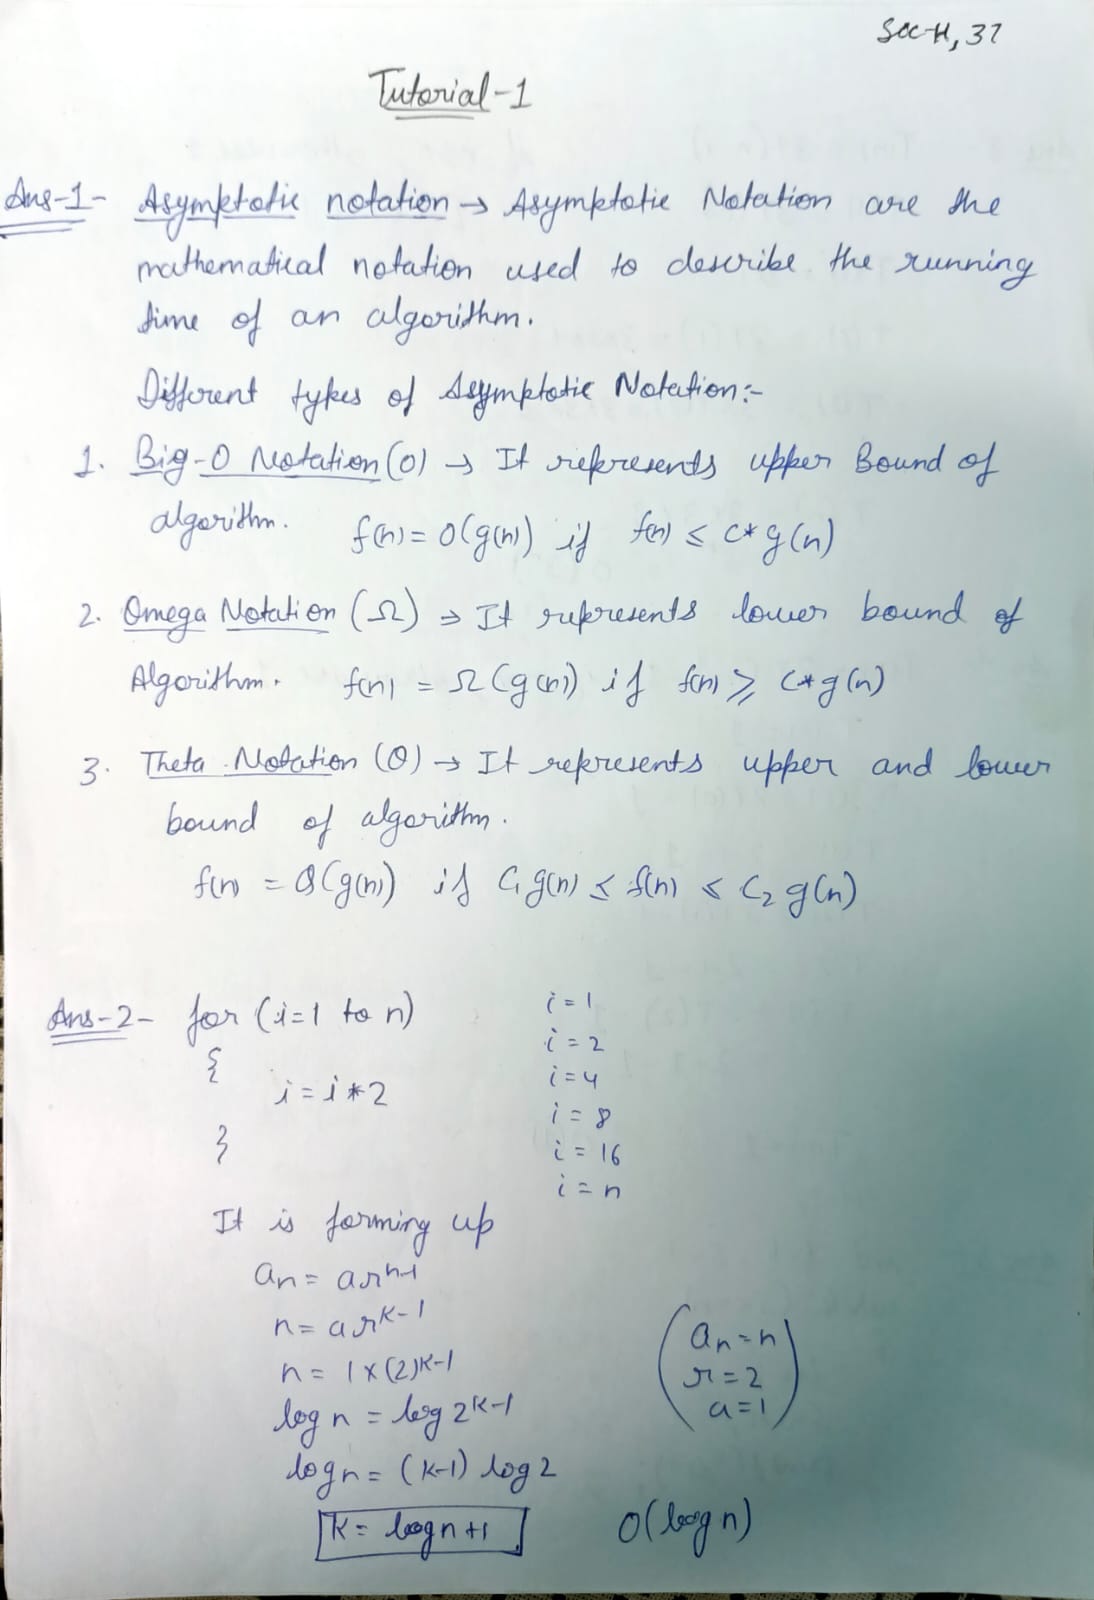 Sec-H, 37
Tutorial-1
Ans-1- Asymptotic notation → Asymptotic Notation are the
mathematical notation used to describe the running
time of an algorithm.
Different types of Asymptotic Notation:-
1. Big-O Notation (O) → It represents upper Bound of
algorithm. f(n) = O(g(n)) if f(n) ≤ C* g(n)
2. Omega Notation (Ω) → It represents lower bound of
Algorithm. f(n) = Ω (g(n)) if f(n) ≥ C*g(n)
3. Theta Notation (Θ) → It represents upper and lower
bound of algorithm.
f(n) = Θ(g(n)) if C₁ g(n) ≤ f(n) ≤ C₂ g(n)
Ans-2- for (i=1 to n)
{
i = i * 2
}
i = 1
i = 2
i = 4
i = 8
i = 16
i = n
It is forming up
an = arⁿ⁻¹
n = ar^K-1
n = 1 x (2)^K-1
log n = log 2^K-1
log n = (K-1) log 2
K = log n + 1
(an = n
r = 2
a = 1)
O(log n)